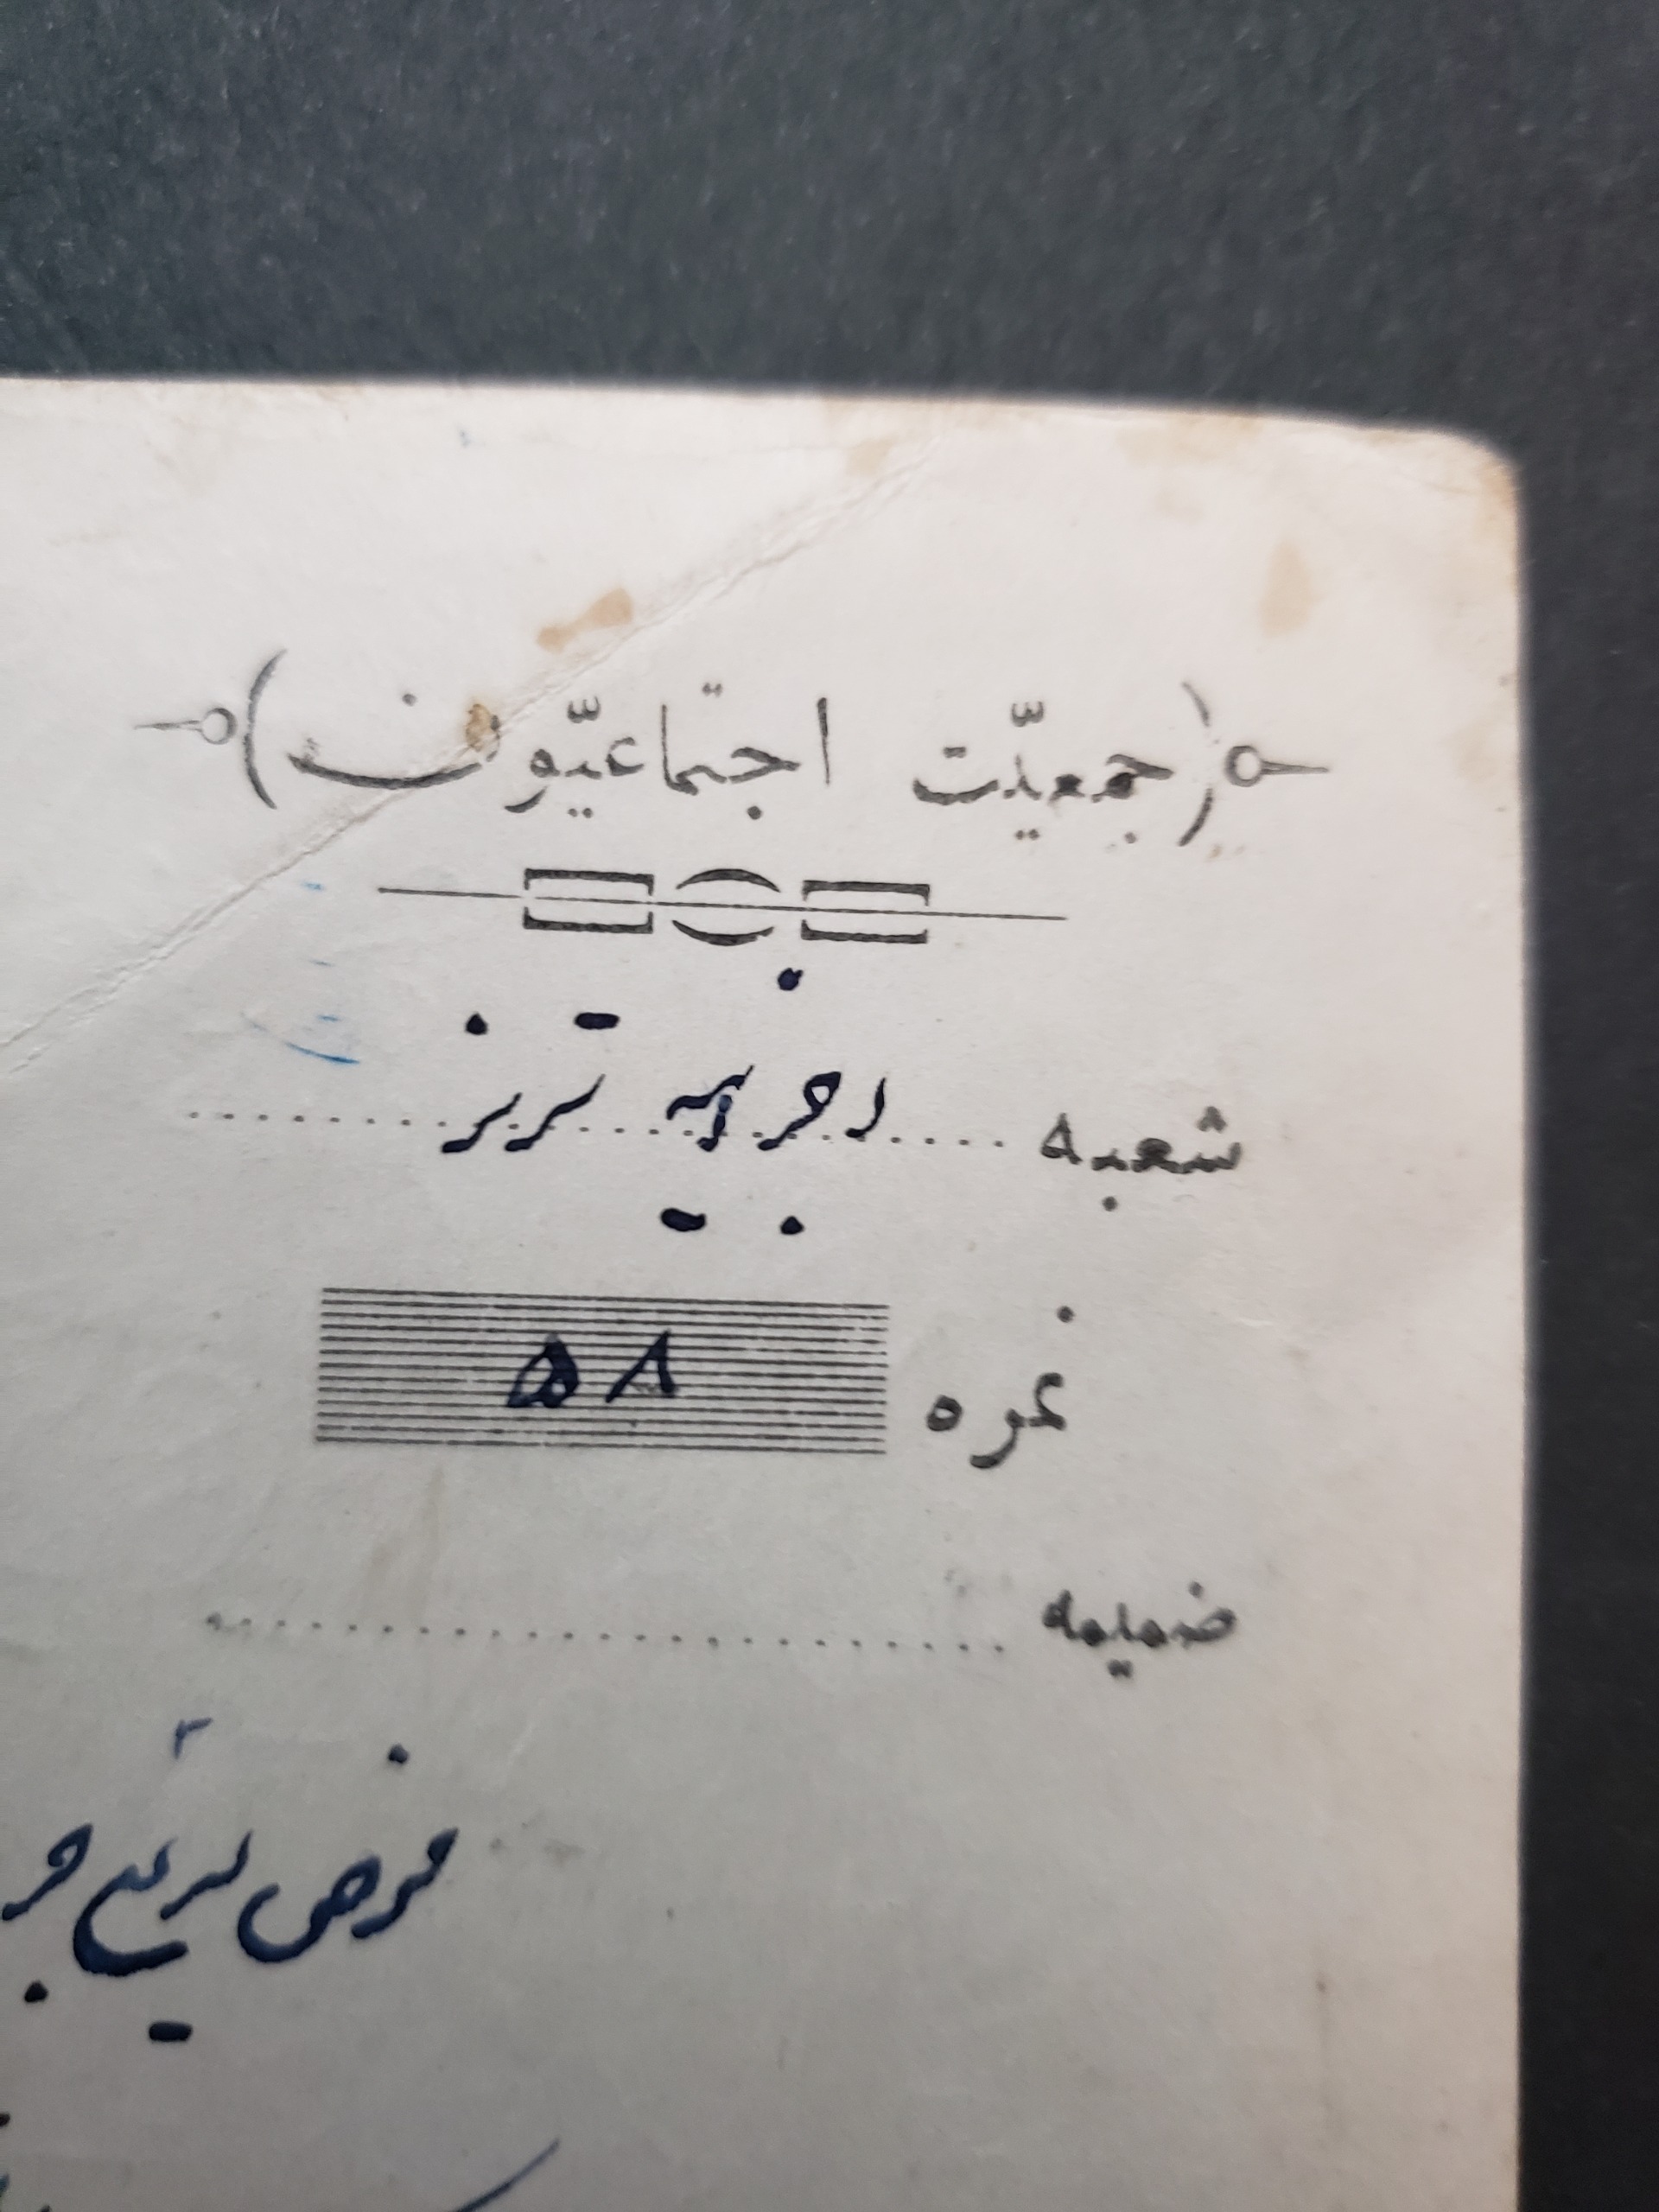 (جمعیّت اجتماعیّون)
شعبه اجزائیه تبریز
نمره ۵۸
ضمیمه